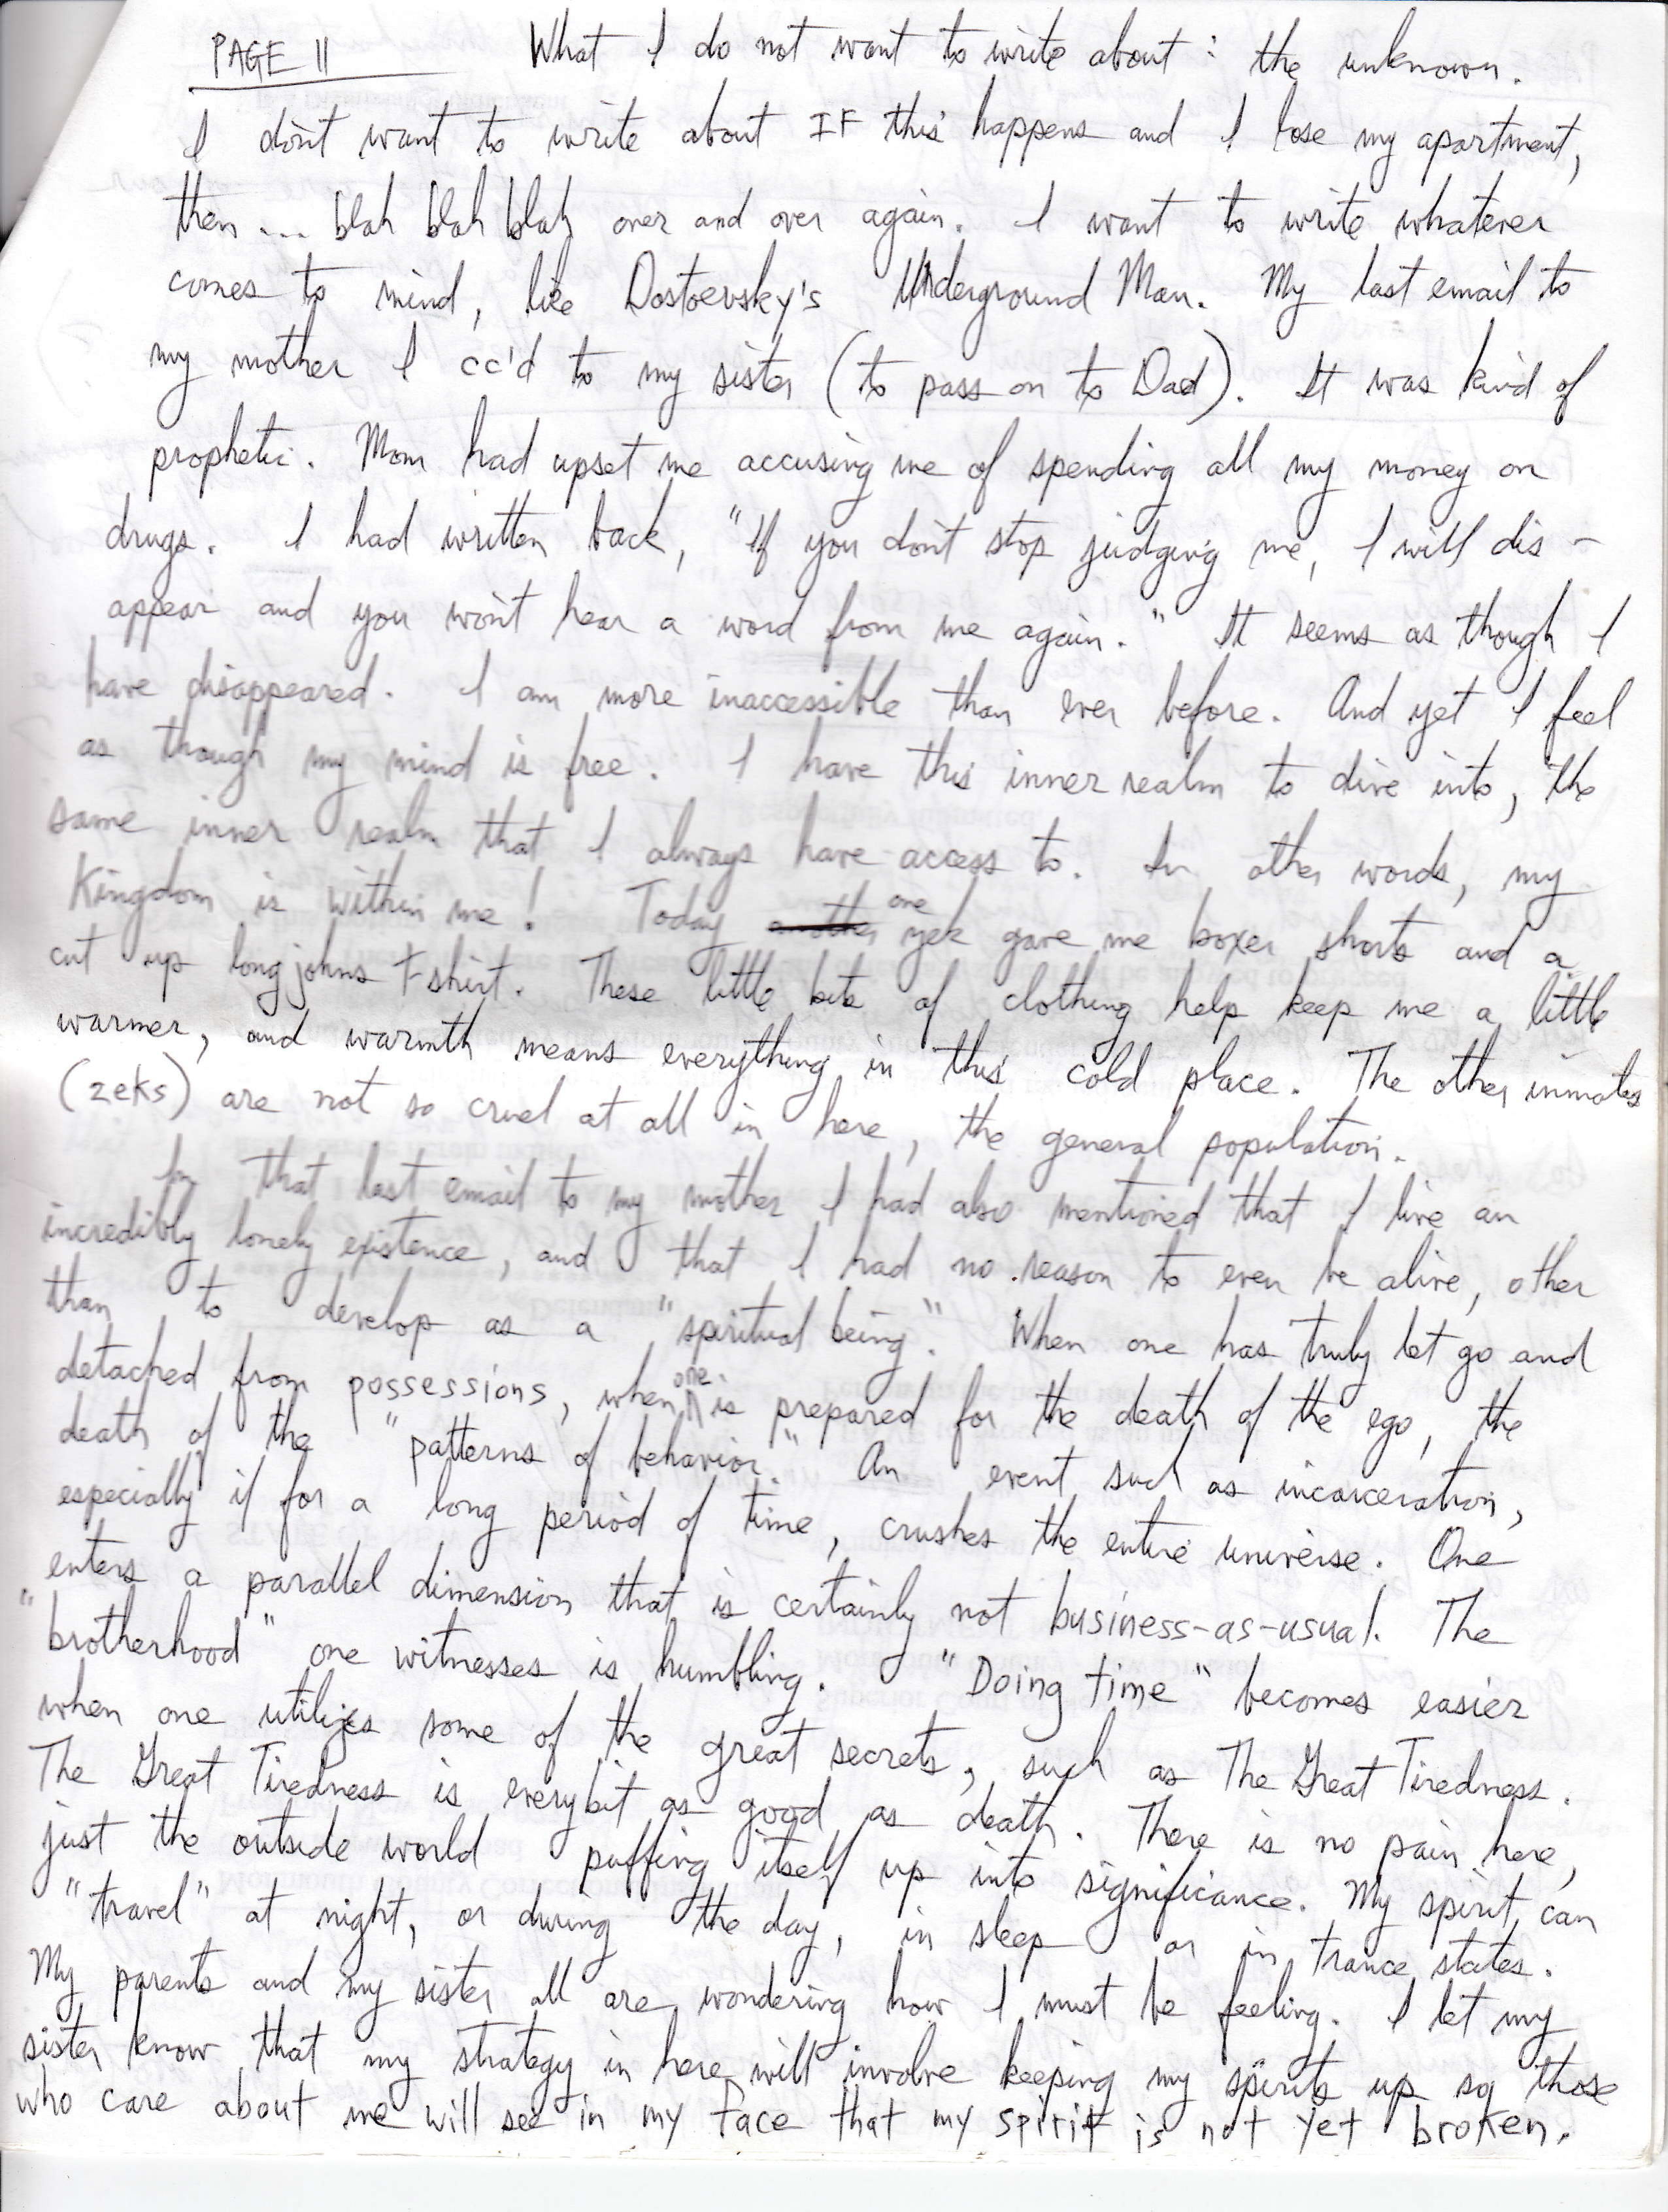 PAGE 11 What I do not want to write about: the unknown.
I don't want to write about IF this happens and I lose my apartment,
then ... blah blah blah over and over again. I want to write whatever
comes to mind, like Dostoevsky's Underground Man. My last email to
my mother I cc'd to my sister (to pass on to Dad). It was kind of
prophetic. Mom had upset me accusing me of spending all my money on
drugs. I had written back, "If you don't stop judging me, I will dis-
appear and you won't hear a word from me again." It seems as though I
have disappeared. I am more inaccessible than ever before. And yet I feel
as though my mind is free. I have this inner realm to dive into, the
same inner realm that I always have access to. In other words, my
Kingdom is within me! Today one zek gave me boxer shorts and a
cut up long johns T-shirt. These little bits of clothing help keep me a little
warmer, and warmth means everything in this cold place. The other inmates
(zeks) are not so cruel at all in here, the general population.
In that last email to my mother I had also mentioned that I live an
incredibly lonely existence, and that I had no reason to even be alive, other
than to develop as a "spiritual being". When one has truly let go and
detached from possessions, when one is prepared for the death of the ego, the
death of the "patterns of behavior." An event such as incarceration,
especially if for a long period of time, crushes the entire universe. One
enters a parallel dimension that is certainly not business-as-usual. The
"brotherhood" one witnesses is humbling. "Doing time" becomes easier
when one utilizes some of the great secrets, such as The Great Tiredness.
The Great Tiredness is everybit as good as death. There is no pain here,
just the outside world puffing itself up into significance. My spirit can
"travel" at night, or during the day, in sleep or in trance states.
My parents and my sister all are wondering how I must be feeling. I let my
sister know that my strategy in here will involve keeping my spirits up so those
who care about me will see in my face that my spirit is not yet broken.